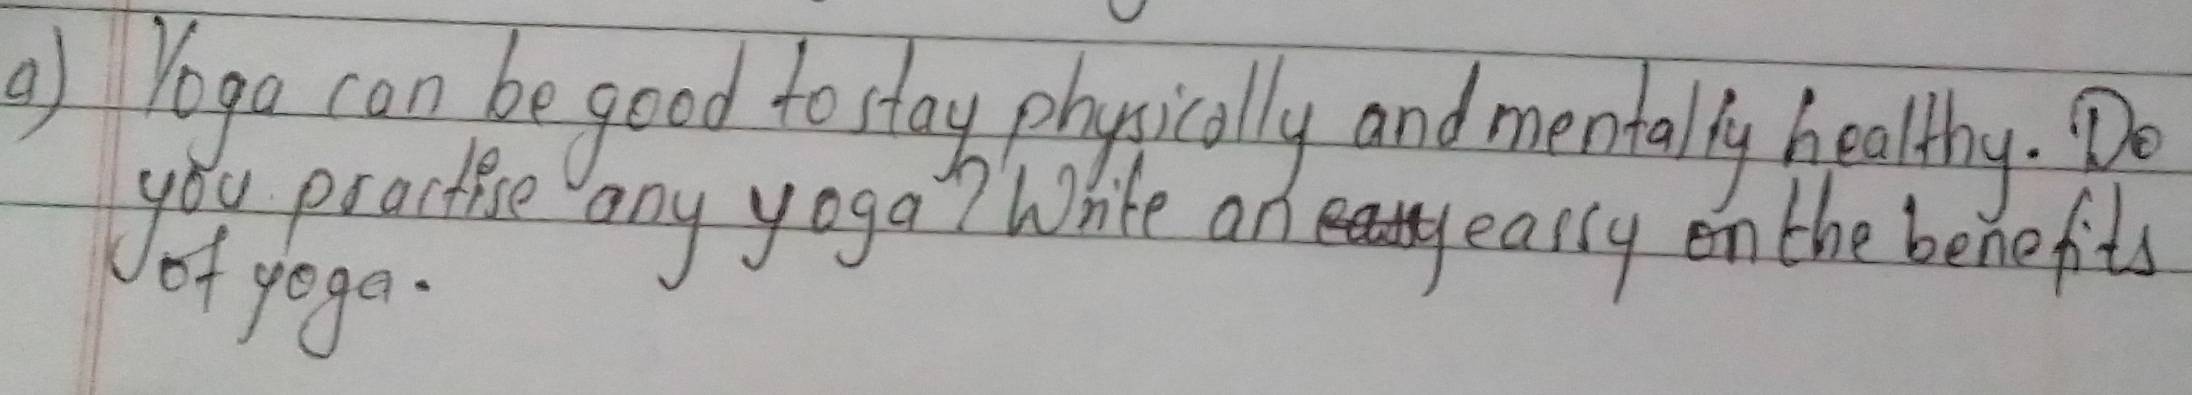 a) Yoga can be good to stay physically and mentally healthy. Do
you practise any yoga? Write an eassy on the benefits
of yoga.